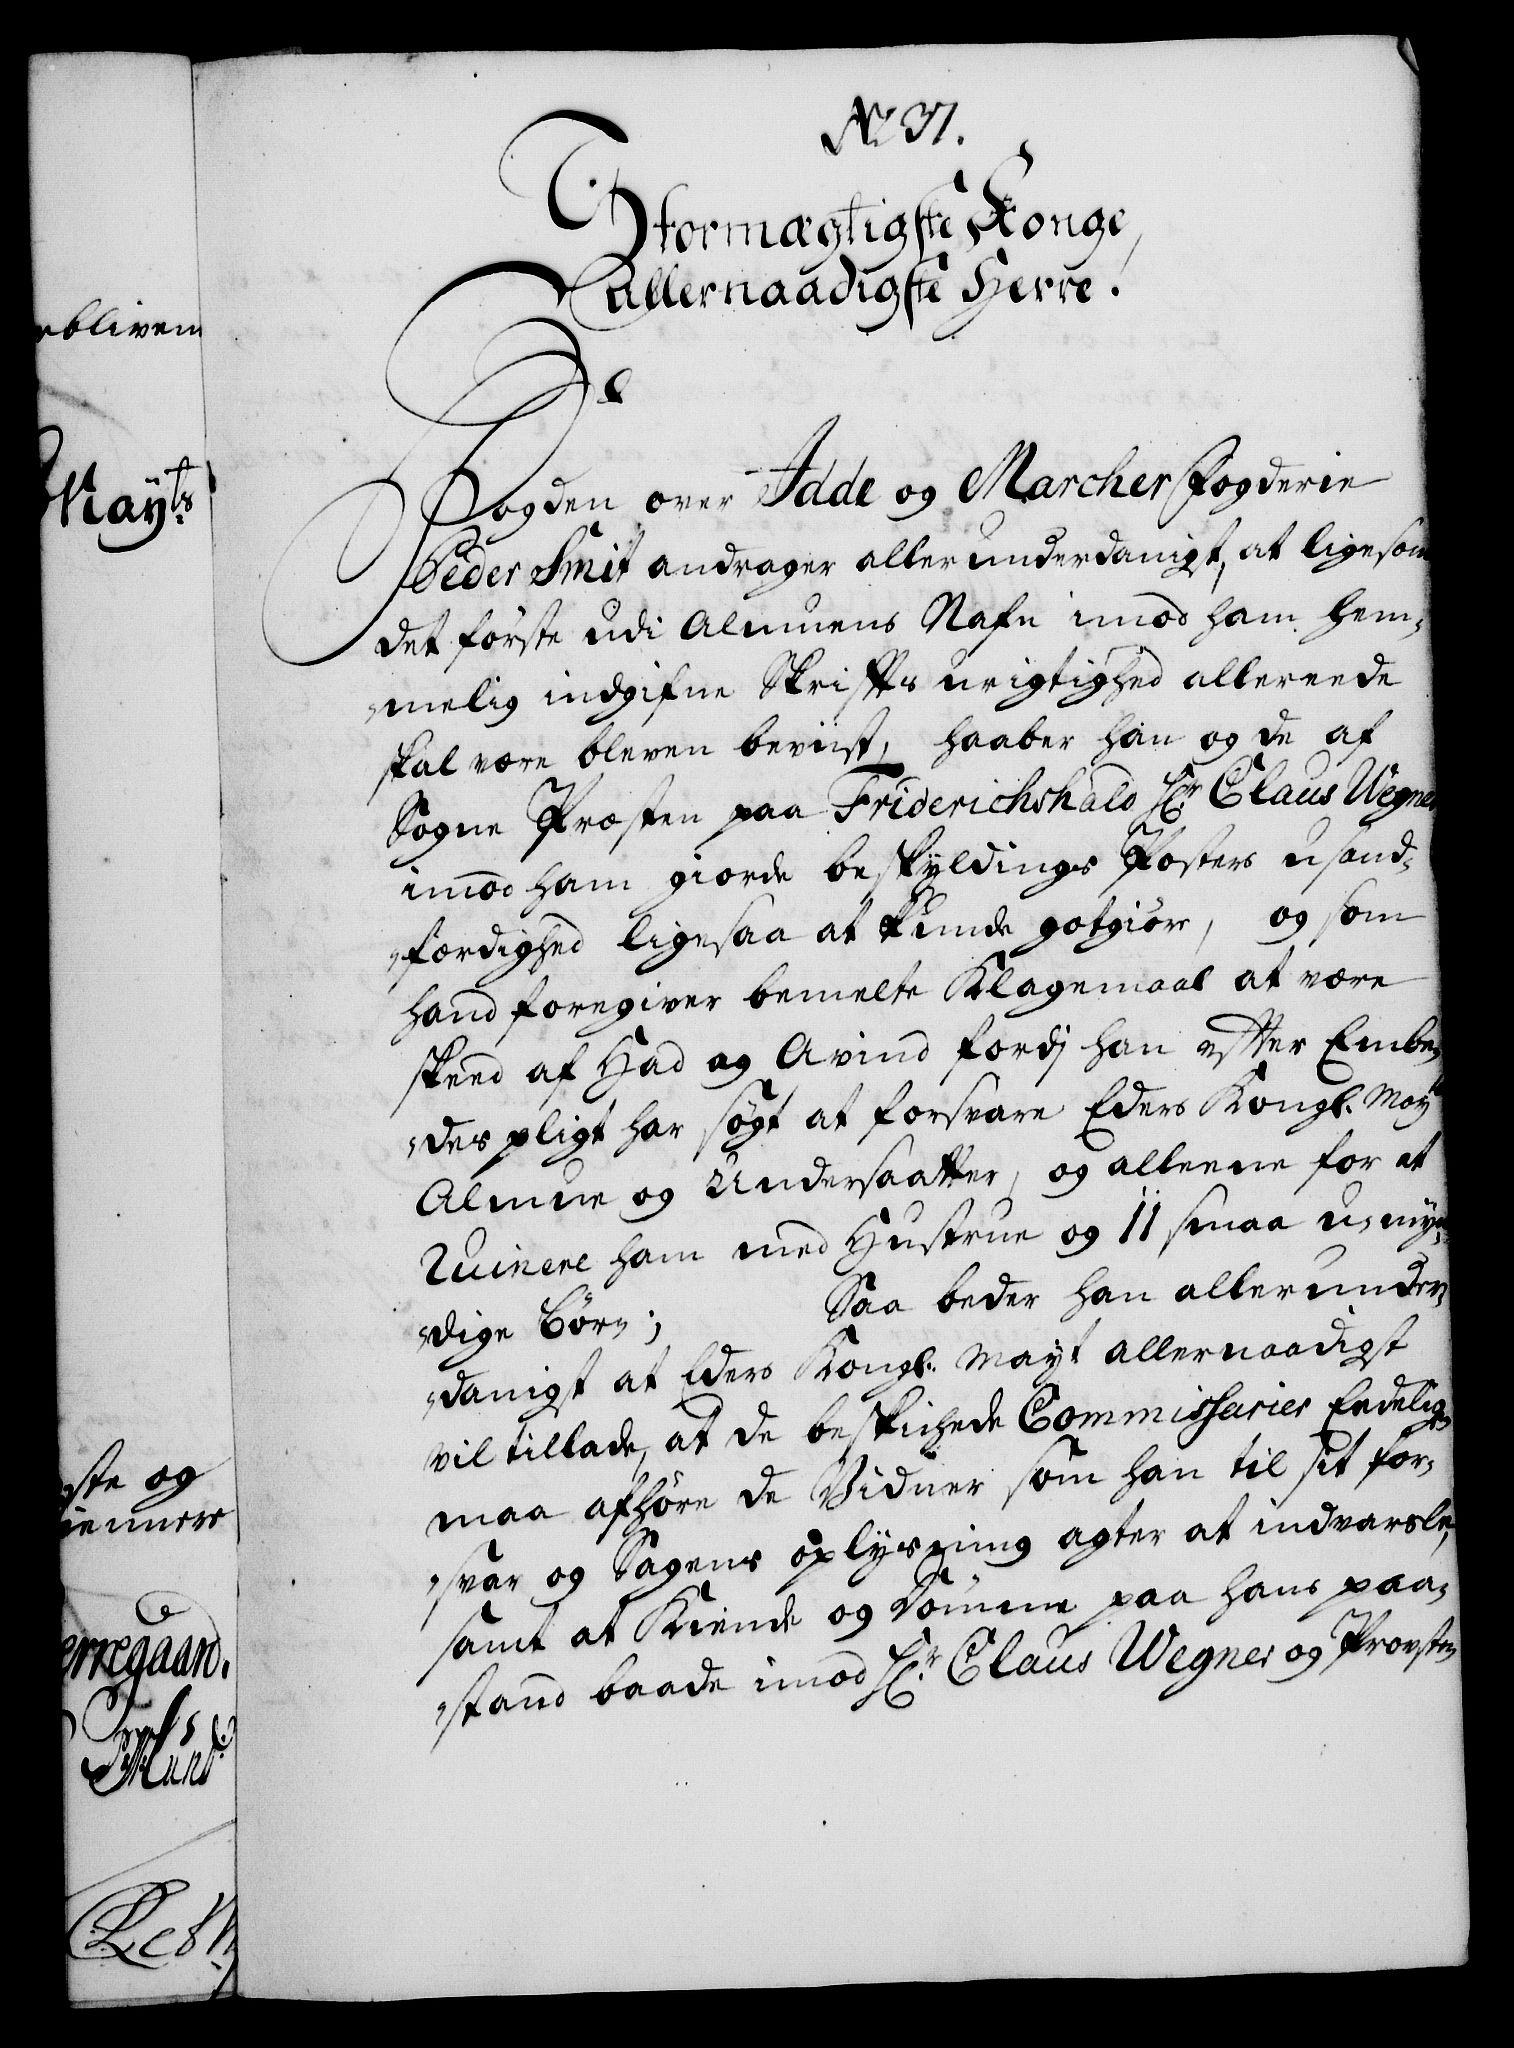 No 37.
Stormægtigste Konge,
Allernaadigste Herre!
Fogden over Idde og Marcher Fogderie
Peder Smit andrager allerunderdanigst, at ligesom
det første udi Almuens Nafn imod ham hem-
-melig indgifne Skriftes urigtighed allereede
skal være bleven beviist, haaber han og de af
Sogne Præsten paa Friderichshald Hr. Claus Wegner
imod ham giorde beskyldings Posters usand-
-færdighed ligesaa at kunde gotgiøre, og som
hand foregiver bemelte Klagemaal at være
skeed af Had og Avind fordj han efter Embe-
-des pligt har søgt at forsvare Eders Kongl. Mayts
Almue og Undersaatter, og alleene for at
Ruinere ham med Hustrue og 11 smaa u-myn-
-dige Børn; Saa beder han allerunder-
-danigst at Eders Kongl. Mayt allernaadigst
vil tillade, at de beskichede Commissarier Endelig
maa afhøre de Vidner som han til sit for-
-svar og Sagens oplysning agter at indvarsle,
samt at Kiende og Dømme paa hans paa-
-stand baade imod Hr. Claus Wegner og Provsten
ebliven
Mayts
ste og
ienneres
erregaard.
Lets